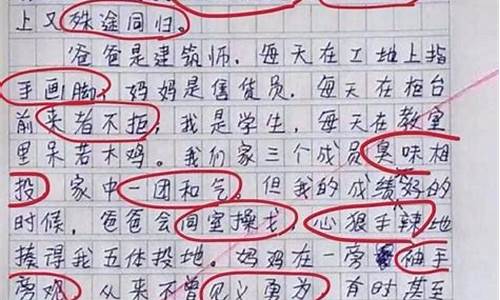 上又殊途同归。
爸爸是建筑师，每天在工地上指
手画脚，妈妈是售货员，每天在柜台
前来者不拒，我是学生，每天在教室
里呆若木鸡。我们家三个成员臭味相
投，家中一团和气。但我的成绩好的
时候，爸爸会同室操戈，心狠手辣地
揍得我五体投地。妈妈在一旁袖手
旁观，从来不曾见义勇为，有时甚至